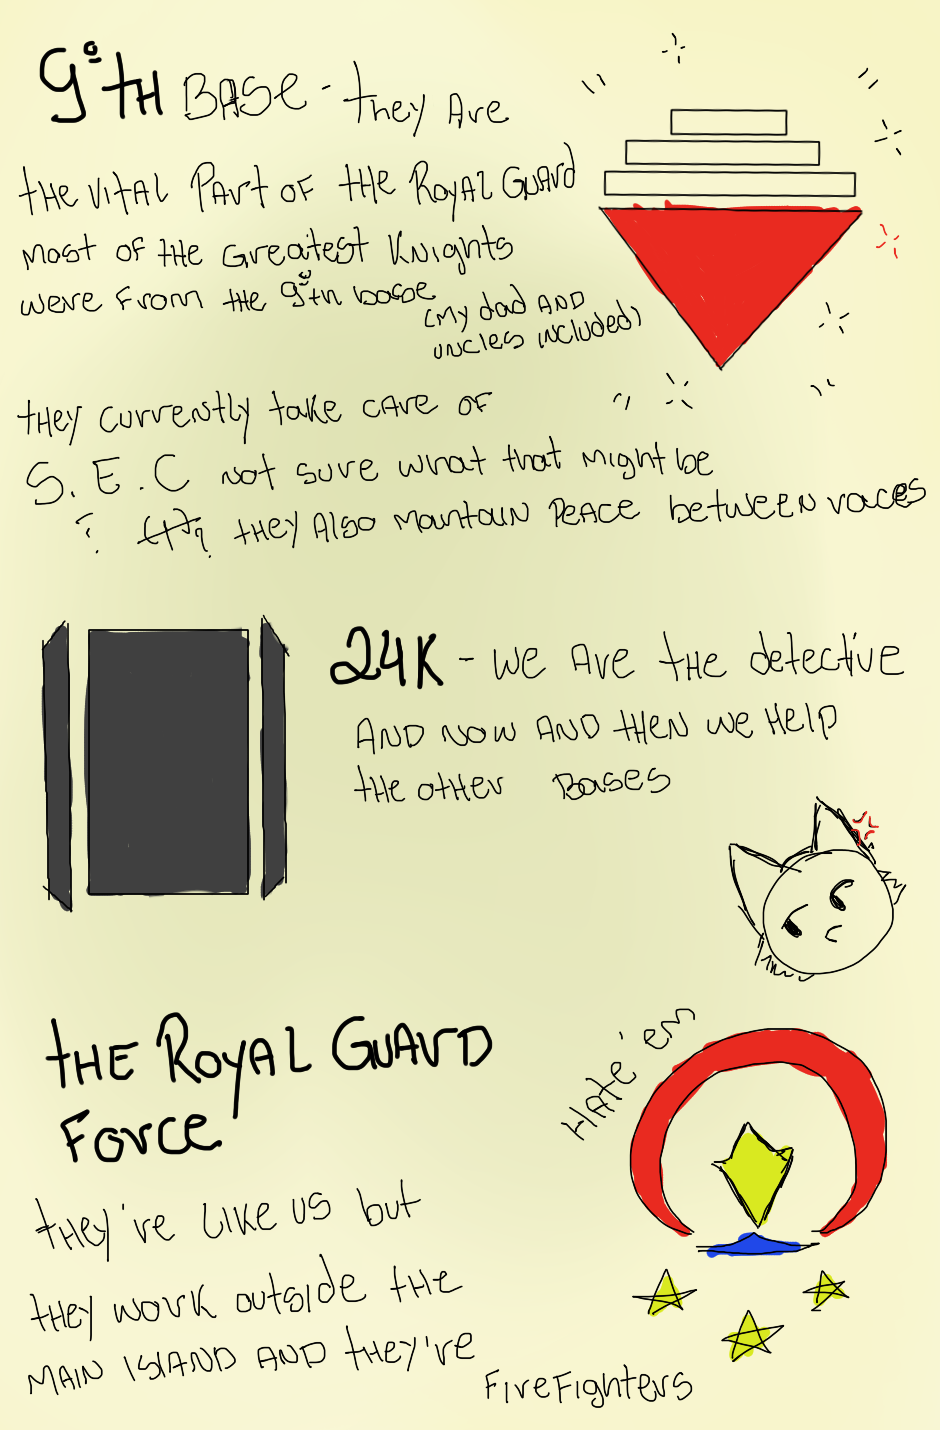 9°tH BASE - they Are
tHE VITAL PArt OF tHE ROYAL GUArd
MOST OF tHE GrEAtESt KNIgHts
WErE FrOM tHE 9°tH basE
(My dad AND
UNCLES INCLUDED)
tHEy CUrrENtLY tAKE CArE OF
S.E.C NOt SUrE WHAt tHAt MIgHt bE
? tHEY ALSO MAINTAIN PEACE bEtWEEN rACES
24K - WE ArE tHE dEtECtIVE
AND NOW AND tHEN WE HELP
tHE OtHEr BASES
tHE ROYAL GUArD
FOrCE
HAtE 'EM
tHEY'rE LIKE US bUt
tHEY WOrK OUtSIdE tHE
MAIN ISLAND AND tHEY'rE
FIrEFIgHtErS